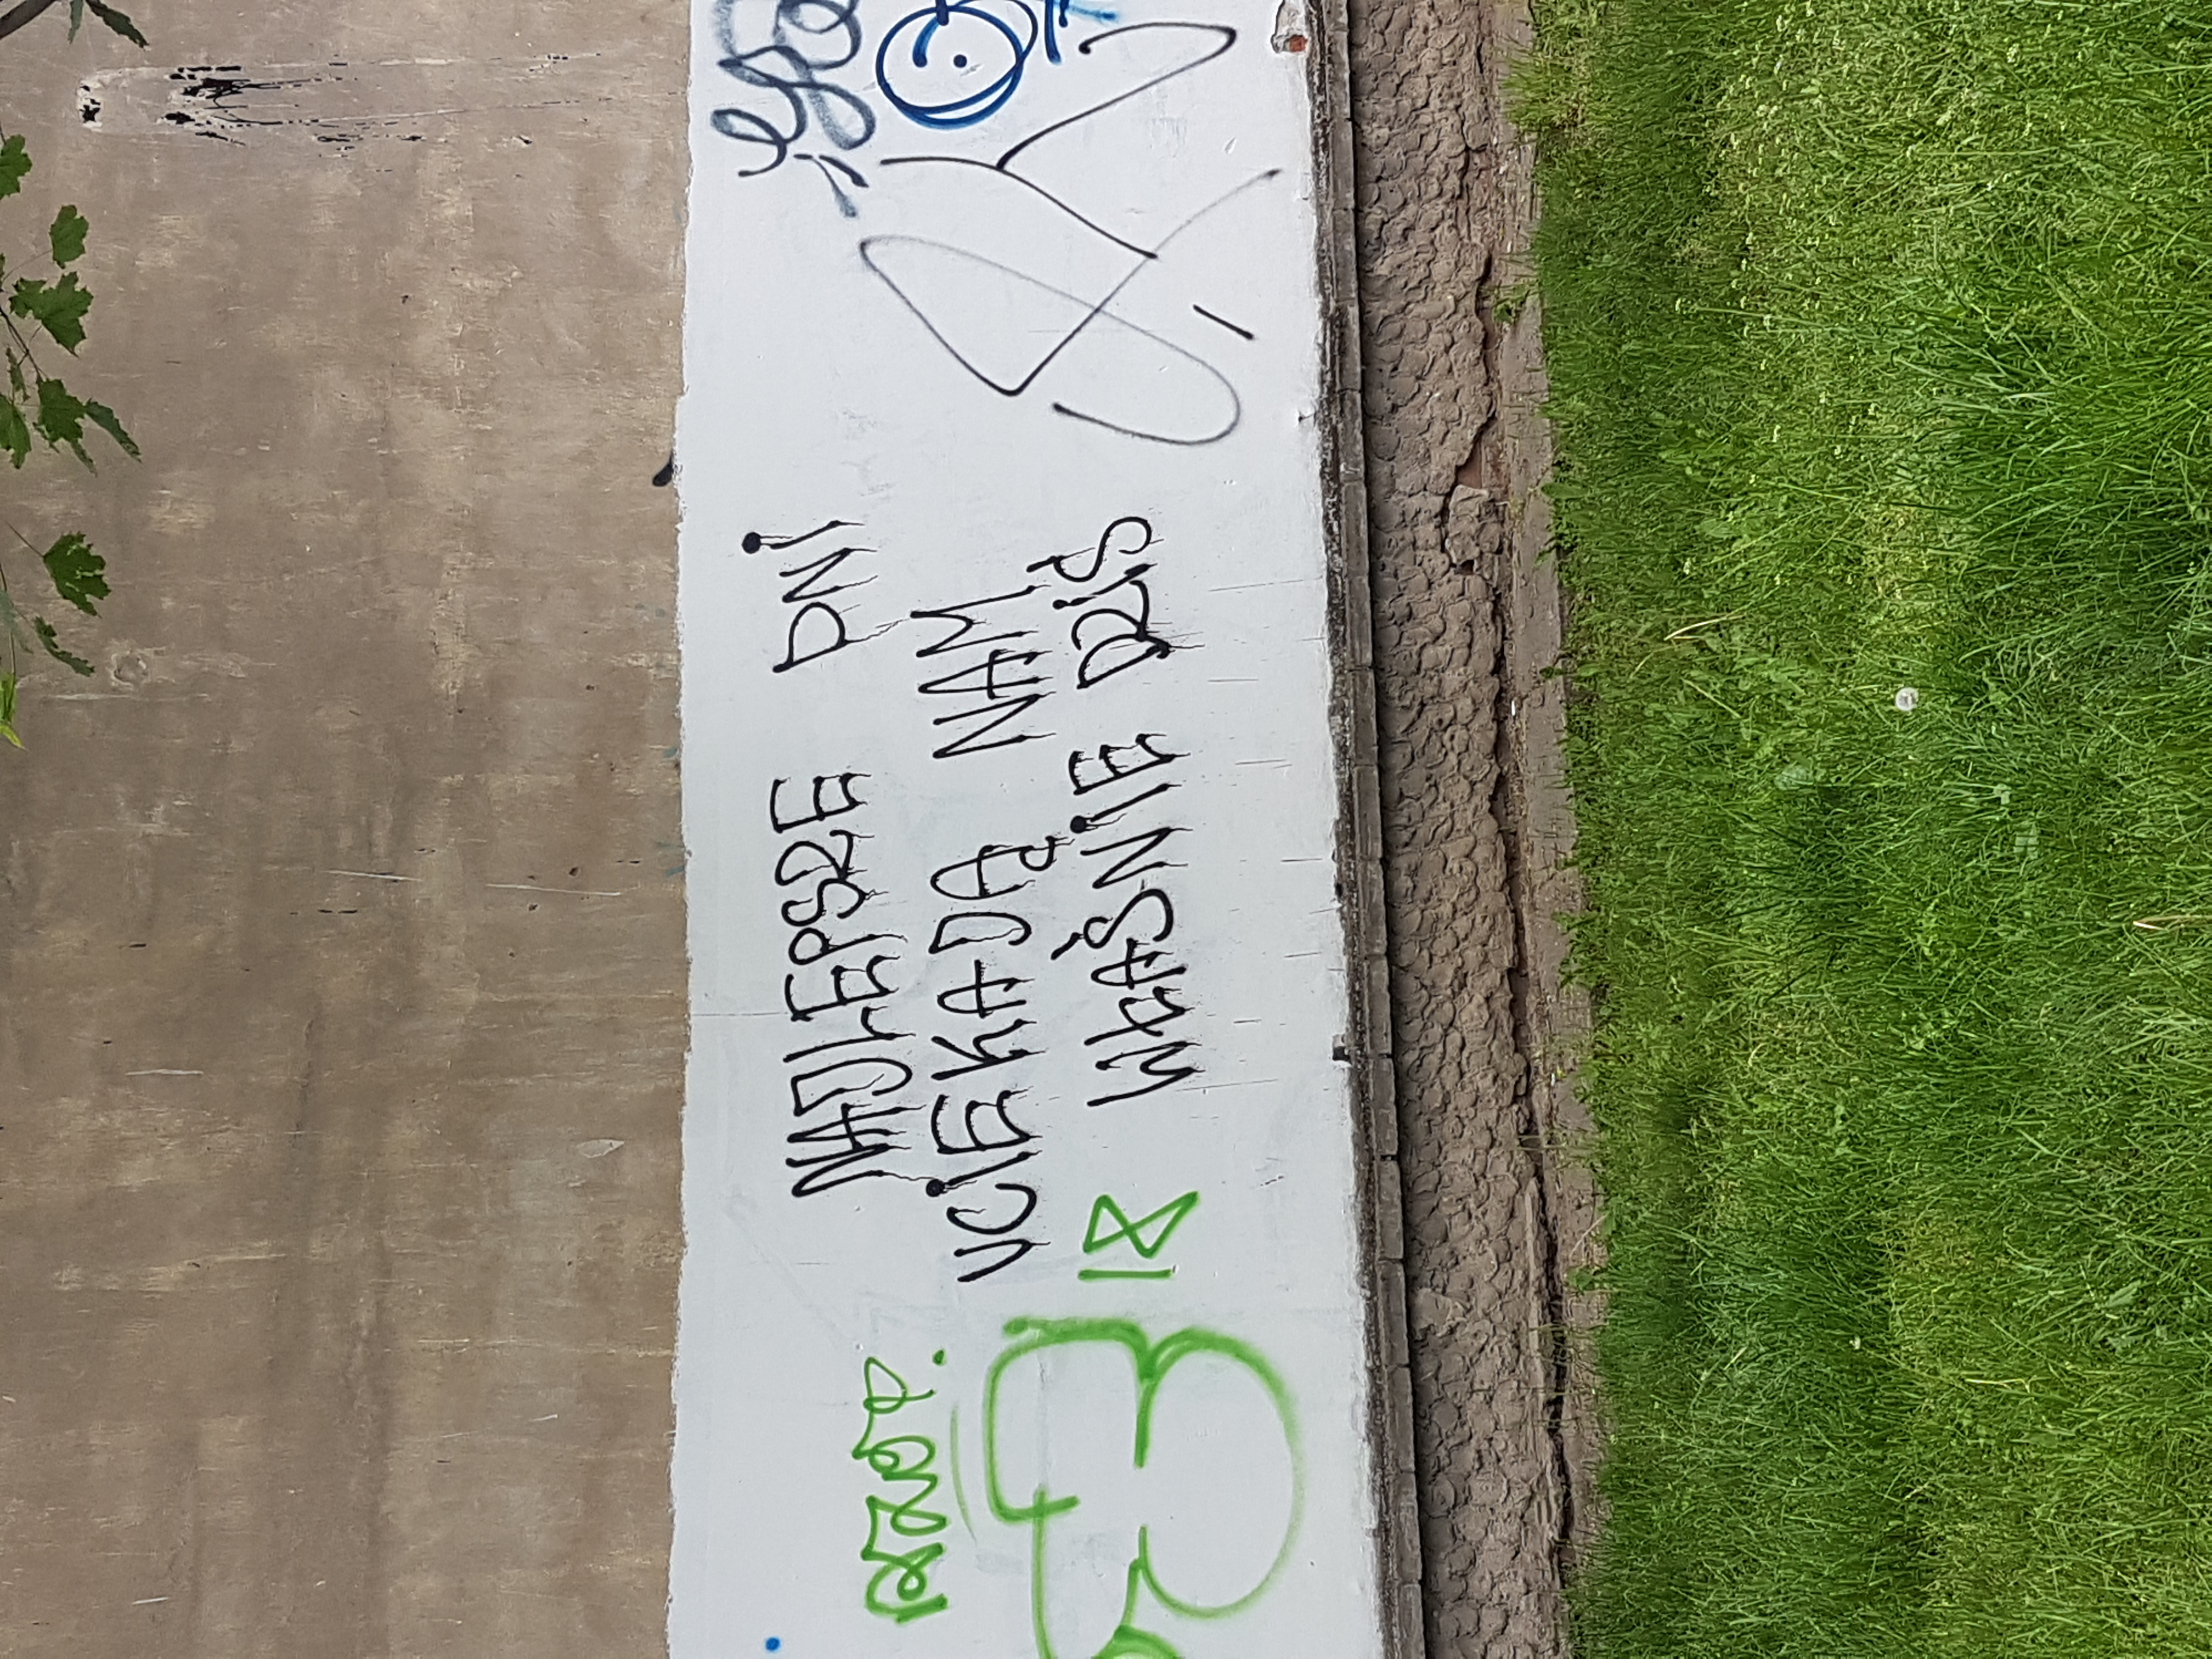 NAJLEPSZE DNI
UCIEKAJĄ NAM
18
WŁAŚNIE DZIŚ